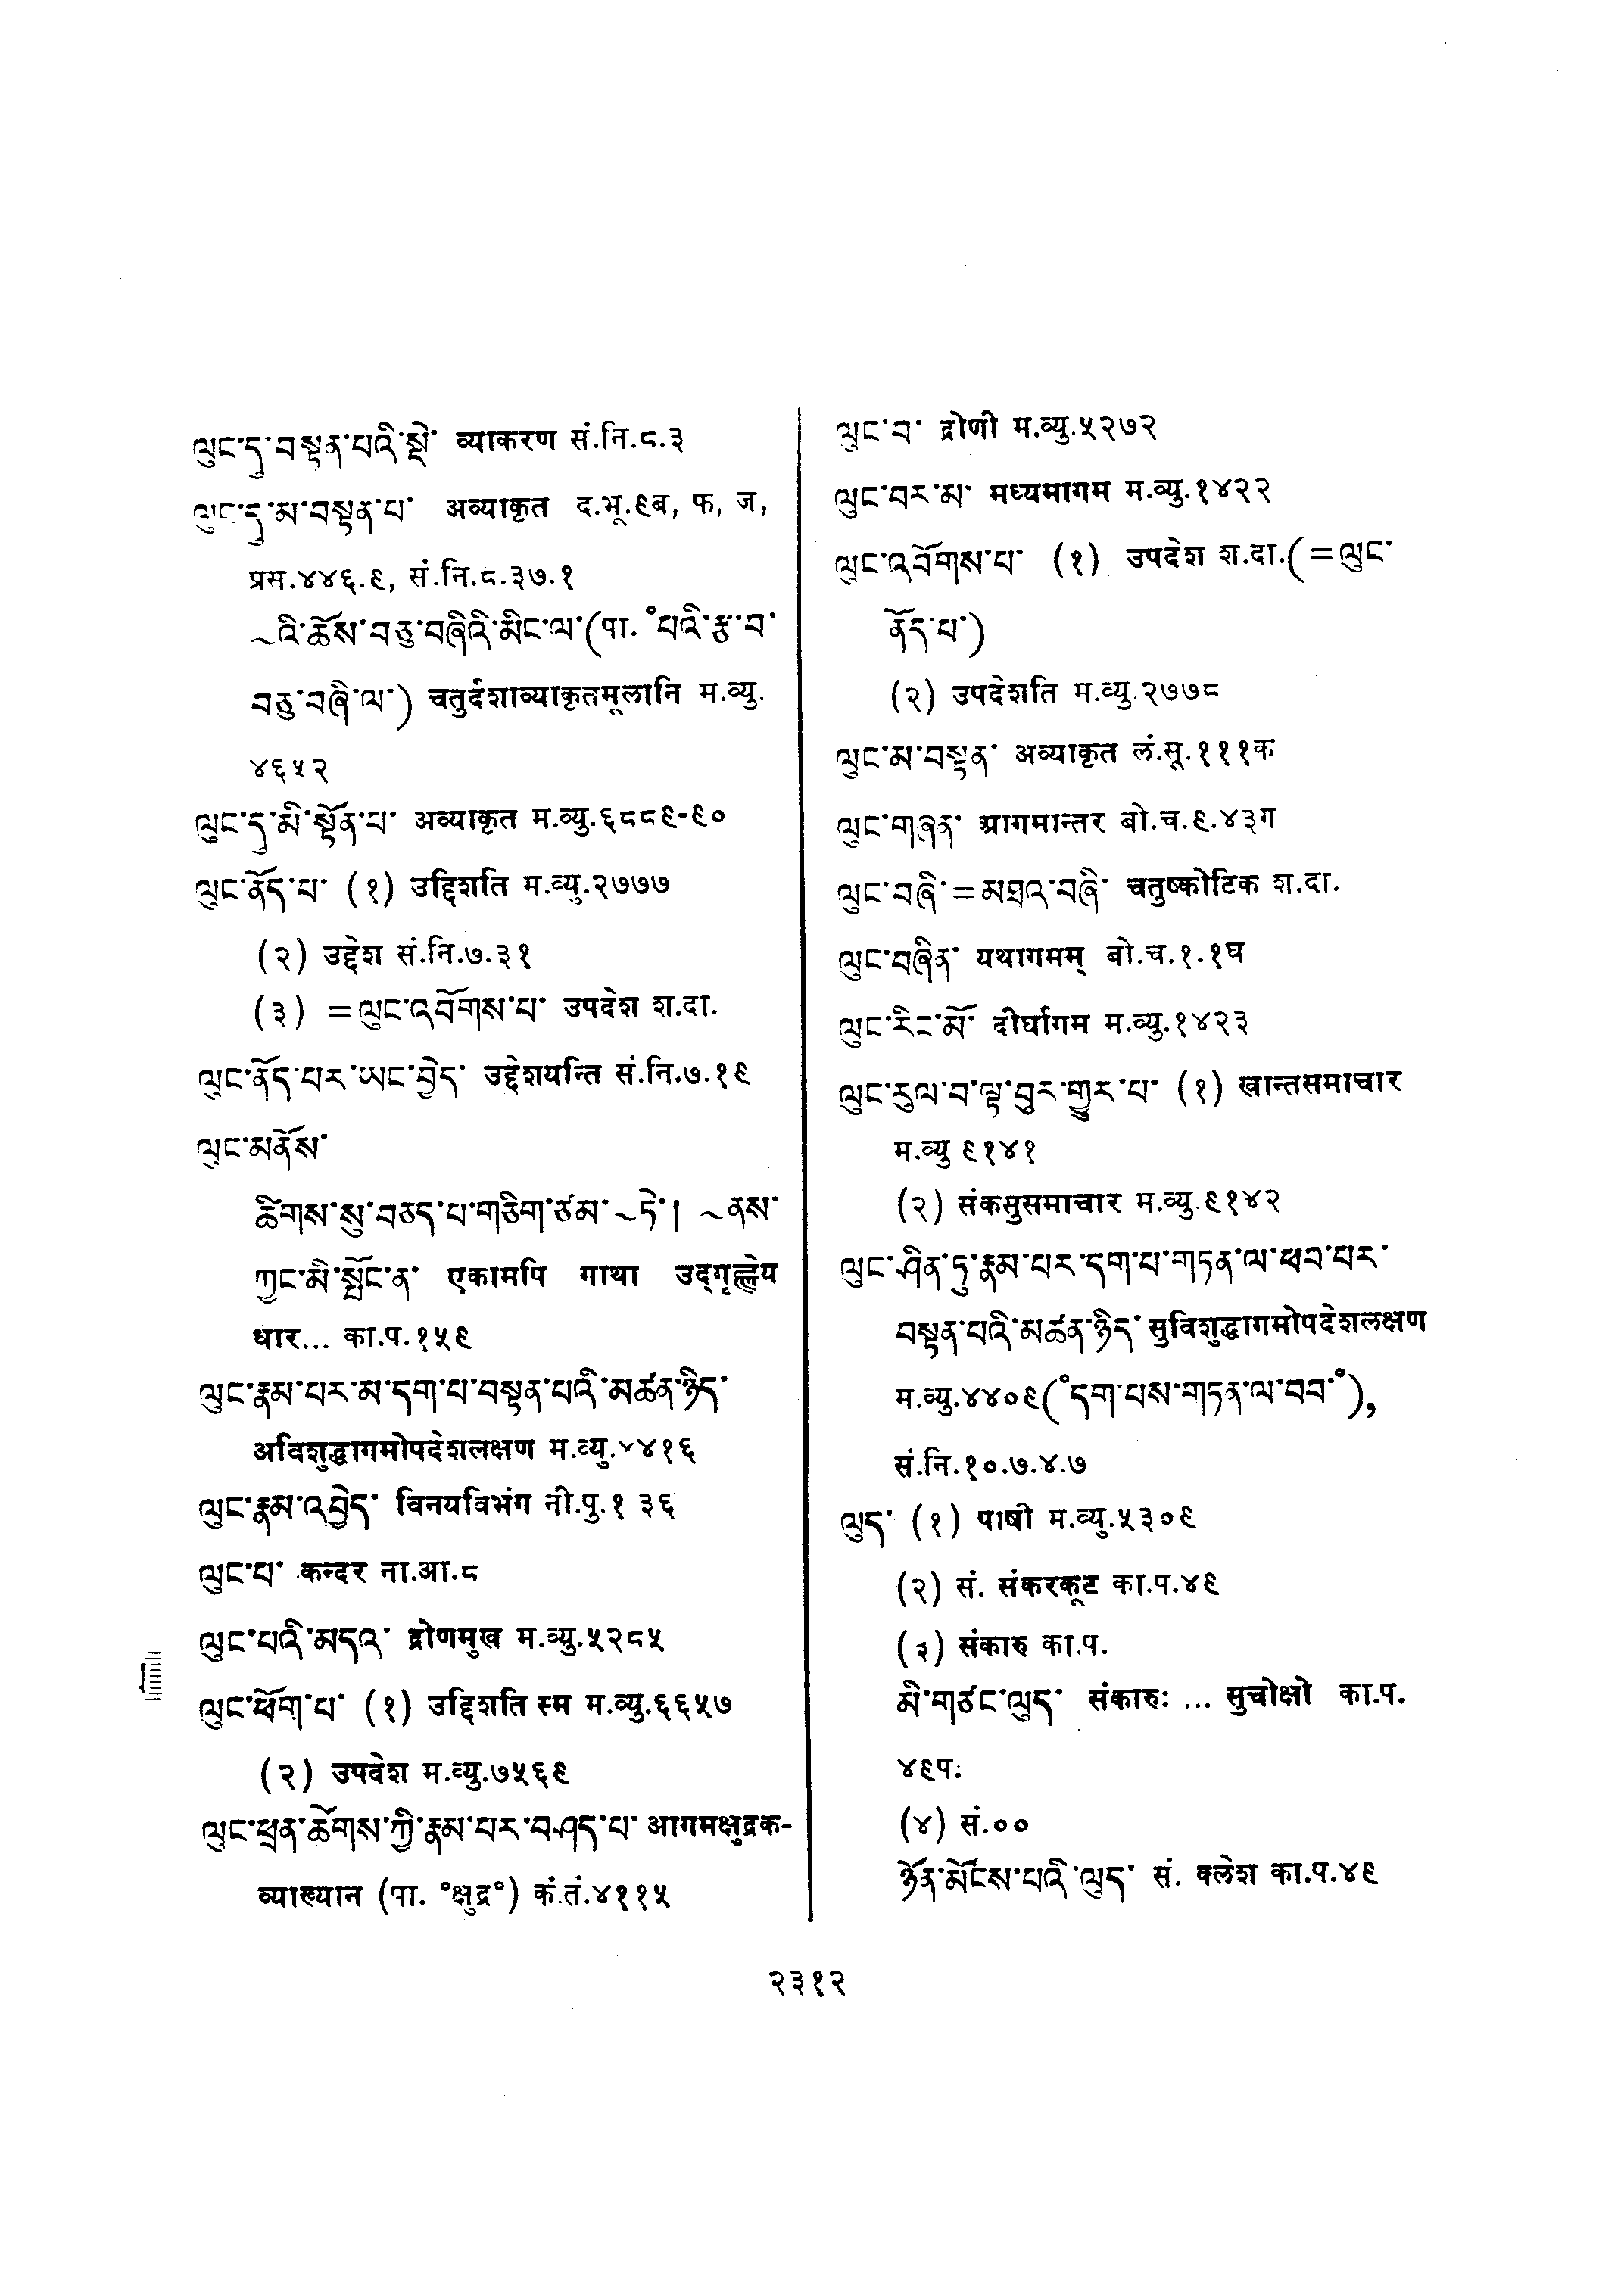 ལུང་དུ་བསྟན་པའི་སྡེ་ व्याकरण सं.नि.८.३
ལུང་དུ་མ་བསྟན་པ་ अव्याकृत द.भू.९ब, फ, ज,
प्रस.४४६.९, सं.नि.८.३७.१
~འི་ཆོས་བཅུ་བཞིའི་མིང་ལ་(पा. °པའི་རྩ་བ་
བཅུ་བཞི་ལ་) चतुर्दशाव्याकृतमूलानि म.व्यु.
४६५२
ལུང་དུ་མི་སྟོན་པ་ अव्याकृत म.व्यु.६८८९-९०
ལུང་ནོད་པ་ (१) उद्दिशति म.व्यु.२७७७
(२) उद्देश सं.नि.७.३१
(३) =ལུང་འབོགས་པ་ उपदेश श.दा.
ལུང་ནོད་པར་ཡང་བྱེད་ उद्देशयन्ति सं.नि.७.१९
ལུང་མནོས་
ཚིགས་སུ་བཅད་པ་གཅིག་ཙམ་~ཏེ་། ~ནས་
ཀྱང་མི་སྤོང་ན་ एकामपि गाथा उद्‌गृह्णेय
धार... का.प.१५९
ལུང་རྣམ་པར་མ་དག་པ་བསྟན་པའི་མཚན་ཉིད་
अविशुद्धागमोपदेशलक्षण म.व्यु.४४१६
ལུང་རྣམ་འབྱེད་ विनयविभंग नी.पु.१ ३६
ལུང་པ་ कन्दर ना.आ.८
ལུང་པའི་མདའ་ द्रोणमुख म.व्यु.५२८५
ལུང་ཕོག་པ་ (१) उद्दिशति स्म म.व्यु.६६५७
(२) उपदेश म.व्यु.७५६९
ལུང་ཕྲན་ཚོགས་ཀྱི་རྣམ་པར་བཤད་པ་ आगमक्षुद्रक-
व्याख्यान (पा. °क्षुद्र°) कं.तं.४११५
ལུང་བ་ द्रोणी म.व्यु.५२७२
ལུང་བར་མ་ मध्यमागम म.व्यु.१४२२
ལུང་འབོགས་པ་ (१) उपदेश श.दा.(=ལུང་
ནོད་པ་)
(२) उपदेशति म.व्यु.२७७८
ལུང་མ་བསྟན་ अव्याकृत लं.सू.१११क
ལུང་གཞན་ आगमान्तर बो.च.९.४३ग
ལུང་བཞི་=མཐའ་བཞི་ चतुष्कोटिक श.दा.
ལུང་བཞིན་ यथागमम् बो.च.१.१घ
ལུང་རིང་མོ་ दीर्घागम म.व्यु.१४२३
ལུང་རུལ་བ་ལྟ་བུར་གྱུར་པ་ (१) खान्तसमाचार
म.व्यु ९१४१
(२) संकसुसमाचार म.व्यु.९१४२
ལུང་ཤིན་ཏུ་རྣམ་པར་དག་པ་གཏན་ལ་ཕབ་པར་
བསྟན་པའི་མཚན་ཉིད་ सुविशुद्धागमोपदेशलक्षण
म.व्यु.४४०९(°དག་པས་གཏན་ལ་བབ་°),
सं.नि.१०.७.४.७
ལུད་ (१) पाषी म.व्यु.५३०९
(२) सं. संकरकूट का.प.४९
(३) संकारु का.प.
མི་གཙང་ལུད་ संकारुः ... सुचोक्षो का.प.
४९प.
(४) सं.००
ཉོན་མོངས་པའི་ལུད་ सं. क्लेश का.प.४९
२३१२